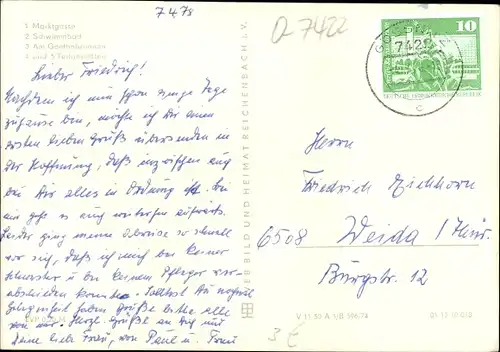 7478
D 7422
1 Marktgasse
2 Schwimmbad
3 Am Goetheblunnen
4 und 5 Teilansichten
10
7421
DEUTSCHE DEMOKRATISCHE REPUBLIK
Lieber Friedrich!
Nachdem ich nun schon einige Tage
zuhause bin, möchte ich Dir einen
ersten lieben Gruß übersenden in
der Hoffnung, daß inzwischen auch
bei Dir alles in Ordnung ist. Bei
uns geht es auch weiterhin aufwärts.
Leider ging meine Abreise so schnell
vor sich, daß ich mich bei keiner
Schwester u. bei keinem Pfleger ver-
abschieden konnte. Solltest Du
Gelegenheit haben grüße bitte alle
von mir. Herzl. Grüße an Dich und
Deine liebe Frau, von Paul u. Frau
Herrn
Friedrich Eichhorn
6508 Weida / Thür.
Burgstr. 12
VEB BILD UND HEIMAT REICHENBACH I. V.
V 11 50 A 1/B 596/74
01 12 10 010
3 €